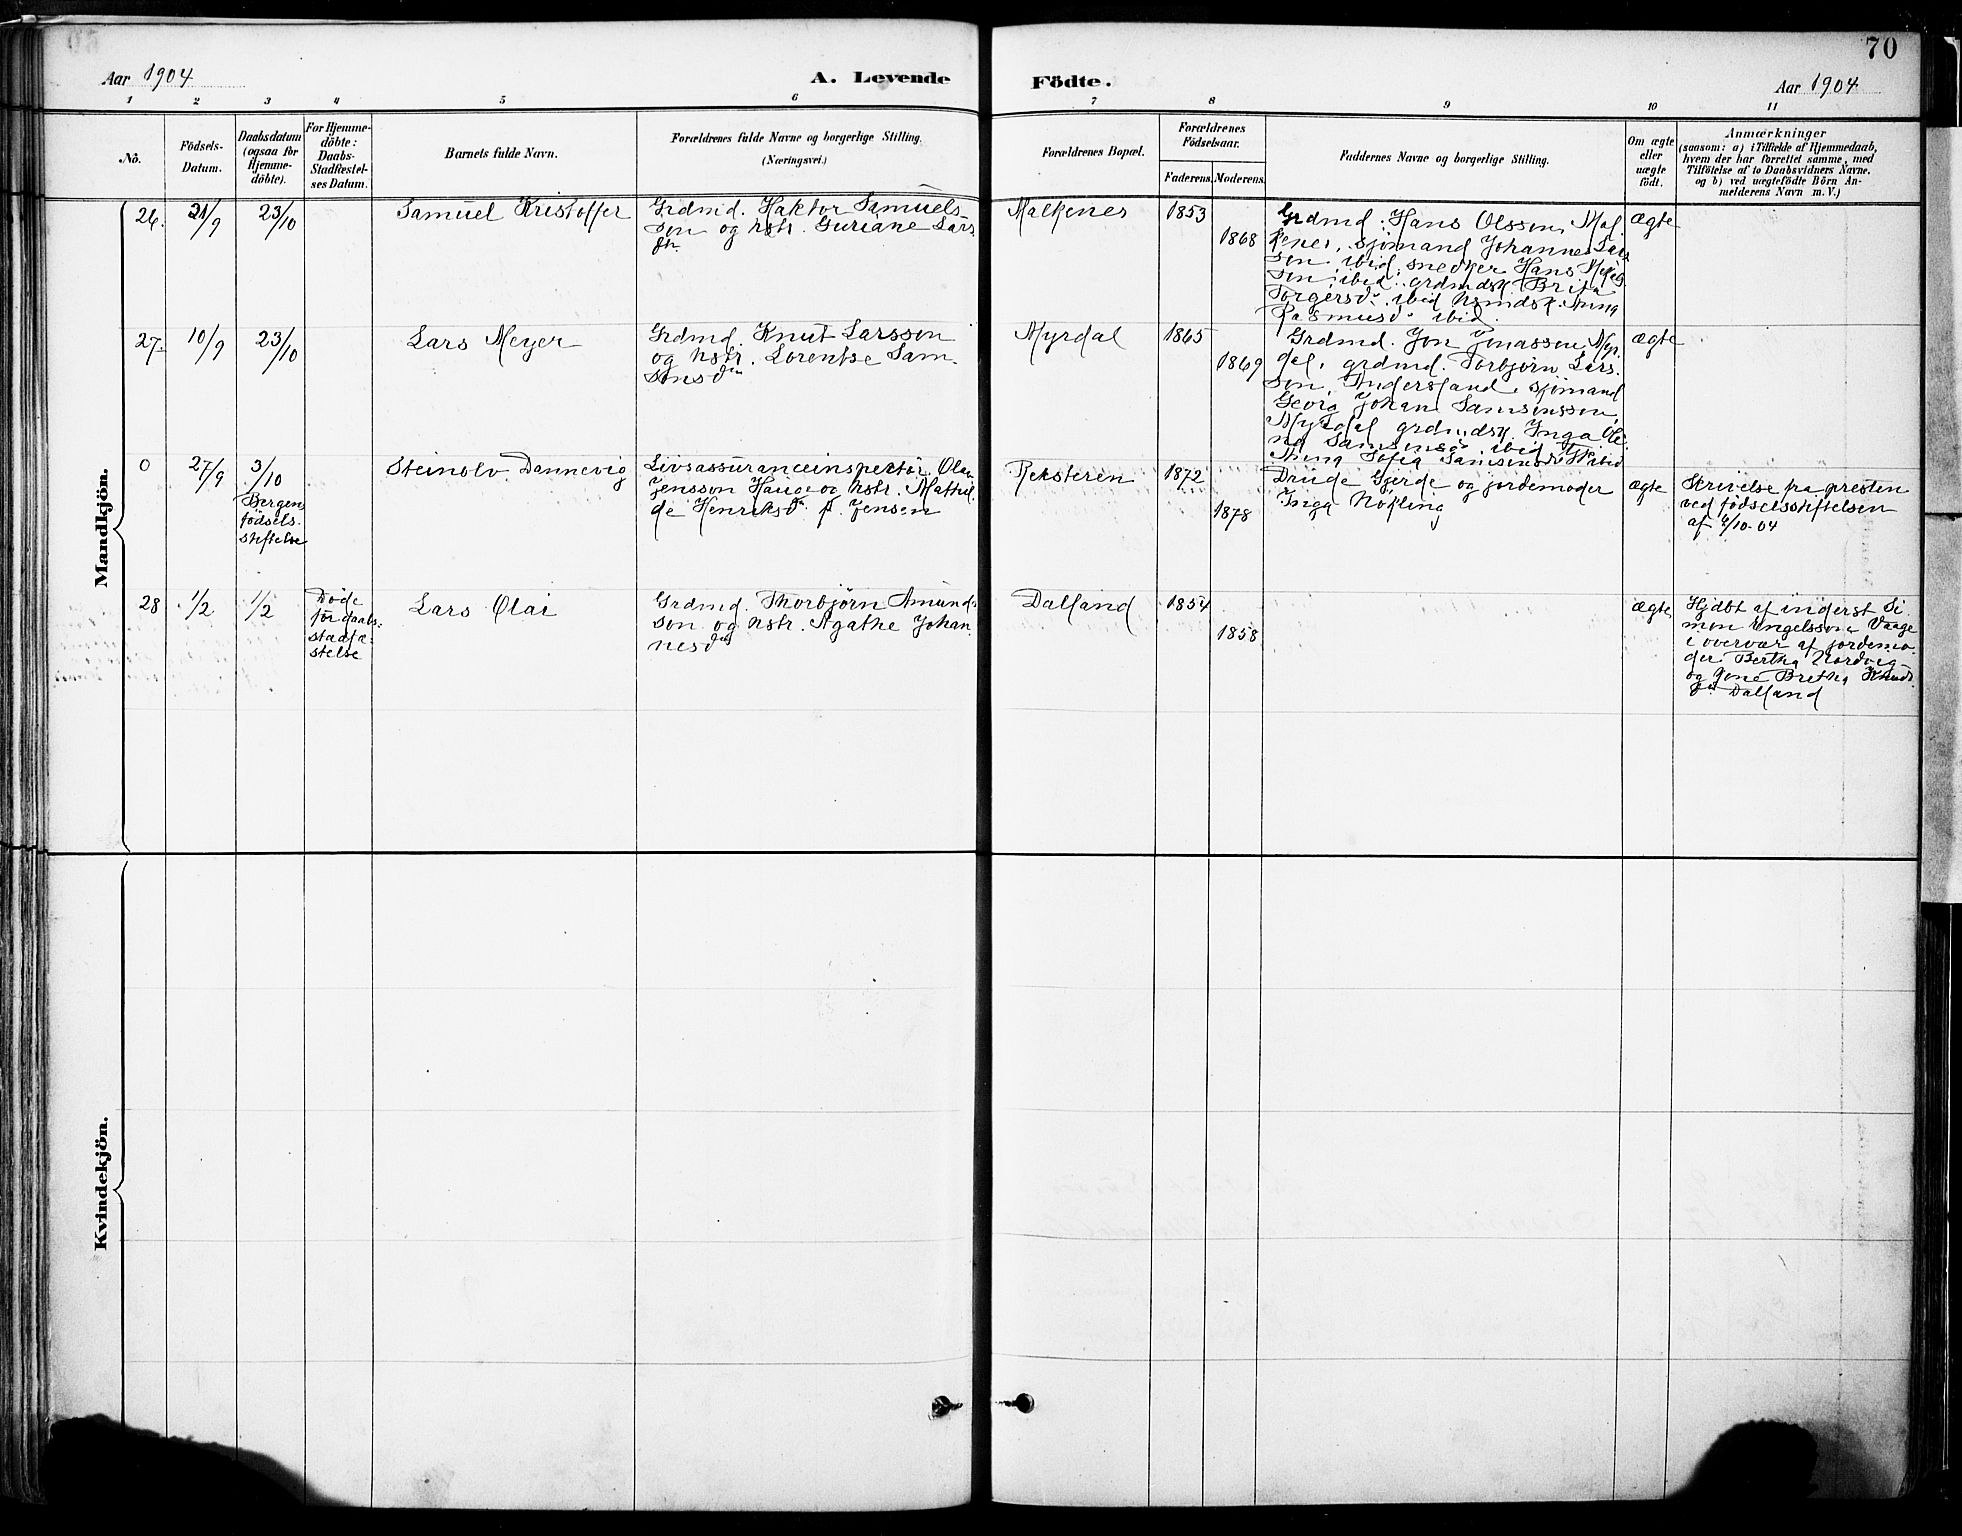 70
Aar 1904
A. Levende
Födte.
Aar 1904
1 2 3 4 5 6 7 8 9 10 11
No.
Födsels-
Datum.
Daabsdatum
(ogsaa for
Hjemme-
döbte).
For Hjemme-
döbte:
Daabs-
Stadfæstel-
ses Datum.
Barnets fulde Navn.
Forældrenes fulde Navne og borgerlige Stilling.
(Næringsvei.)
Forældrenes Bopæl.
Forældrenes
Födselsaar.
Faderens. Moderens.
Faddernes Navne og borgerlige Stilling.
Om ægte
eller
uægte
födt.
Anmærkninger
(saasom: a) i Tilfælde af Hjemmedaab,
hvem der har forrettet samme, med
Tilföielse af to Daabsvidners Navne.
og b) ved uægtefödte Börn An-
melderens Navn m. V.)
Mandkjön.
26.
21/9
23/10
Samuel Kristoffer
Grdmd. Haktor Samuels-
son og hstr. Guriane Lars
dtr.
Malkenes
1853
1868
Grdmd. Hans Olsson, Mal
kenes, sjömand Johannes Lars
son ibid, snedker Hans
son, ibid. grdmdsk. Brita
Torgersd. ibid
Rasmusd. ibid
ægte
27.
10/9
23/10
Lars Meyer
Grdmd. Knut Larsson
og hstr. Lorentse Sam-
sonsdtr
Myrdal
1865
1869
Grdmd. Jon Jonassen Myr
dal, grdmd. Torbjörn Lars
son, Andersland, sjömand
Georg Johan Samsonsson
Myrdal grdmdsk. Inga Ole
na Samsonsd. ibid
Anna Sofia Samsonsd.
ægte
0
27/9
3/10
Bergens
födsels-
stiftelse
Steinolv Dannevig
Livsassuranceinspektör Olav
Jensson Hauge og hstr. Mathil
de Henriksd. f. Jensen
Reksteren
1872
1878
Drude Gjerde og jordemoder
Inga Nökling
ægte
Skrivelse fra presten
ved födselsstiftelsen
af 4/10-04
28
1/2
1/2
Döde
för daabs-
stadfæ-
stelse
Lars Olai
Grdmd. Thorbjörn Amund-
son og hstr. Agathe Johan
nesdtr
Dalland
1854
1858
ægte
Hjdbt af inderst Si
mon Engelsson Vaage
i overvær af jordemo
der Bertha Nordvig
og Gone Bretha Knuds
dtr Dalland
Kvindekjön.